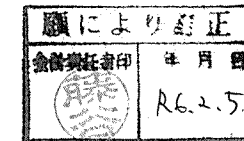 願により訂正
会計責任者印 年月日
藤
R6.2.5.